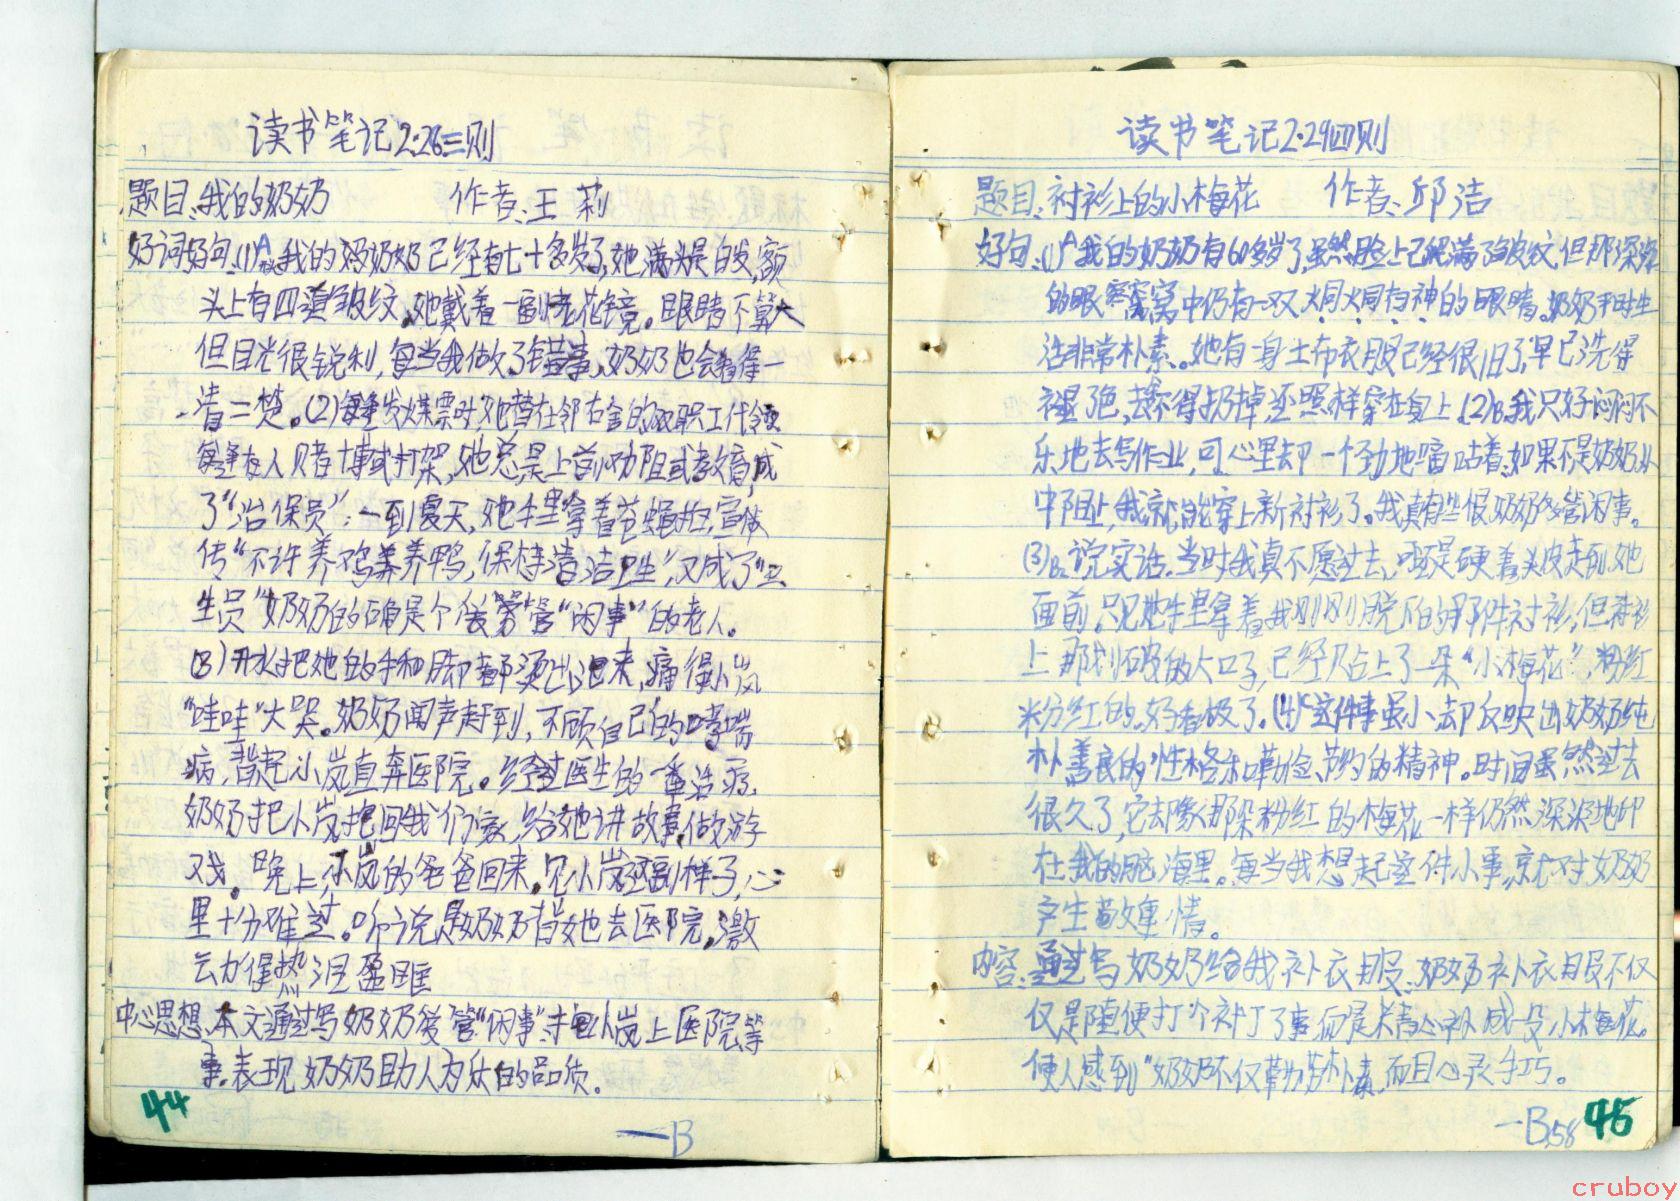 读书笔记2.26三则
题目:我的奶奶 作者:王莉
好词好句:(1)A我的奶奶已经有七十多岁了,她满头是白发,额
头上有四道皱纹,她戴着一副老花镜。眼睛不算大
但目光很锐利,每当我做了错事,奶奶也会看得一
清二楚。(2)每逢发煤票时她替左邻右舍的双职工代领
每逢有人赌博或打架,她总是上前劝阻或教育,成
了“治保员”;一到夏天,她手里拿着苍蝇拍,宣
传“不许养鸡养鸭,保持清洁卫生”,又成了“卫
生员”奶奶的确是个爱管“闲事”的老人。
(3)开水把她的手和脚都烫出泡来,痛得小岚
“哇哇”大哭。奶奶闻声赶到,不顾自己的哮喘
病,背起小岚直奔医院。经过医生的一番治疗,
奶奶把小岚抱回我们家,给她讲故事,做游
戏。晚上,小岚的爸爸回来,见小岚这副样子,心
里十分难过。听说是奶奶背她去医院,激
动得热泪盈眶
中心思想:本文通过写奶奶爱管“闲事”,小岚上医院等
事,表现奶奶助人为乐的品质。
44
一B
读书笔记2.29四则
题目:衬衫上的小梅花 作者:邱洁
好句:(1)A我的奶奶有60多岁了,虽然脸上已经满了皱纹,但那深深
的眼窝中仍有一双炯炯有神的眼睛。奶奶平时生
活非常朴素。她有一身土布衣服已经很旧了,早已洗得
褪了色,去不得扔掉还照样穿在身上(2)B我只好闷闷不
乐地去写作业,可心里却一个劲地嘀咕着:如果不是奶奶从
中阻止,我就能穿上新衬衫了。我真有些恨奶奶多管闲事。
(3)B说实话,当时我真不愿过去,还是硬着头皮走到她
面前。只见她手里拿着我刚刚脱下的那件衬衫,但衬衫
上那划破的大口子,已经贴上了一朵“小梅花”,粉红
粉红的。好看极了。(4)C这件事虽小,却反映出奶奶纯
朴善良的性格和勤俭节约的精神。时间虽然过去
很久了,它却象那朵粉红的梅花一样仍然深深地印
在我的脑海里。每当我想起这件小事,就对奶奶
产生敬重情。
内容:通过写奶奶给我补衣服,奶奶补衣服不仅
仅是随便打个补丁了事,而是精心补成一朵小梅花。
使人感到“奶奶不仅勤劳朴素,而且心灵手巧。
一B58
45
cruboy